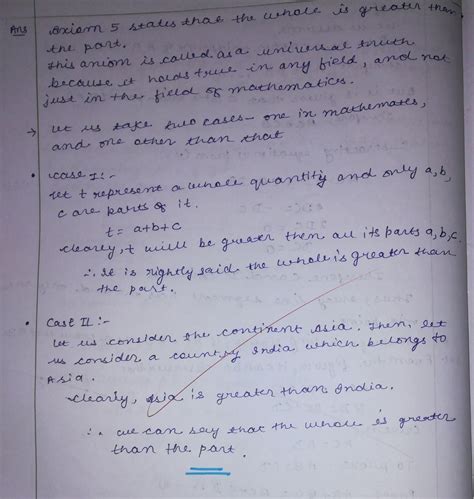 Ans Axiom 5 states that the whole is greater than
the part.
This axiom is called as a universal truth
because it holds true in any field, and not
just in the field of mathematics.
→ Let us take two cases - one in mathemates,
and one other than that
• Case I :-
Let t represent a whole quantity and only a, b,
c are parts of it.
t = a+b+c
Clearly, t will be greater then all its parts a, b, c.
∴ It is rightly said the whole is greater than
the part.
• Case II :-
Let us consider the continent Asia. Then, let
us consider a country India which belongs to
Asia.
Clearly, Asia is greater than India.
∴ we can say that the whole is greater
than the part.